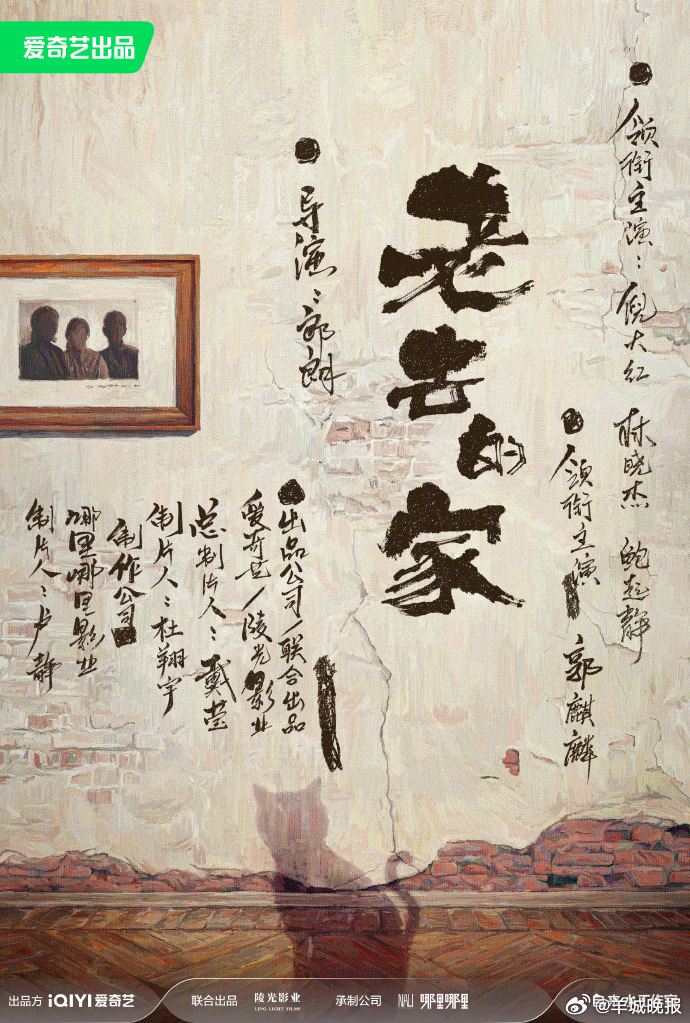 爱奇艺出品
领衔主演：倪大红 林晓杰 鲍起静
领衔主演 郭麒麟
老去的家
导演：郎朗
出品公司／联合出品
爱奇艺／陵光影业
总制片人：戴莹
制片人：杜翔宇
制作公司
哪里哪里影业
制片人：卢静
出品方 iQIYI 爱奇艺
联合出品 陵光影业
LING LIGHT FILMS
承制公司 NALI 哪里哪里
@羊城晚报